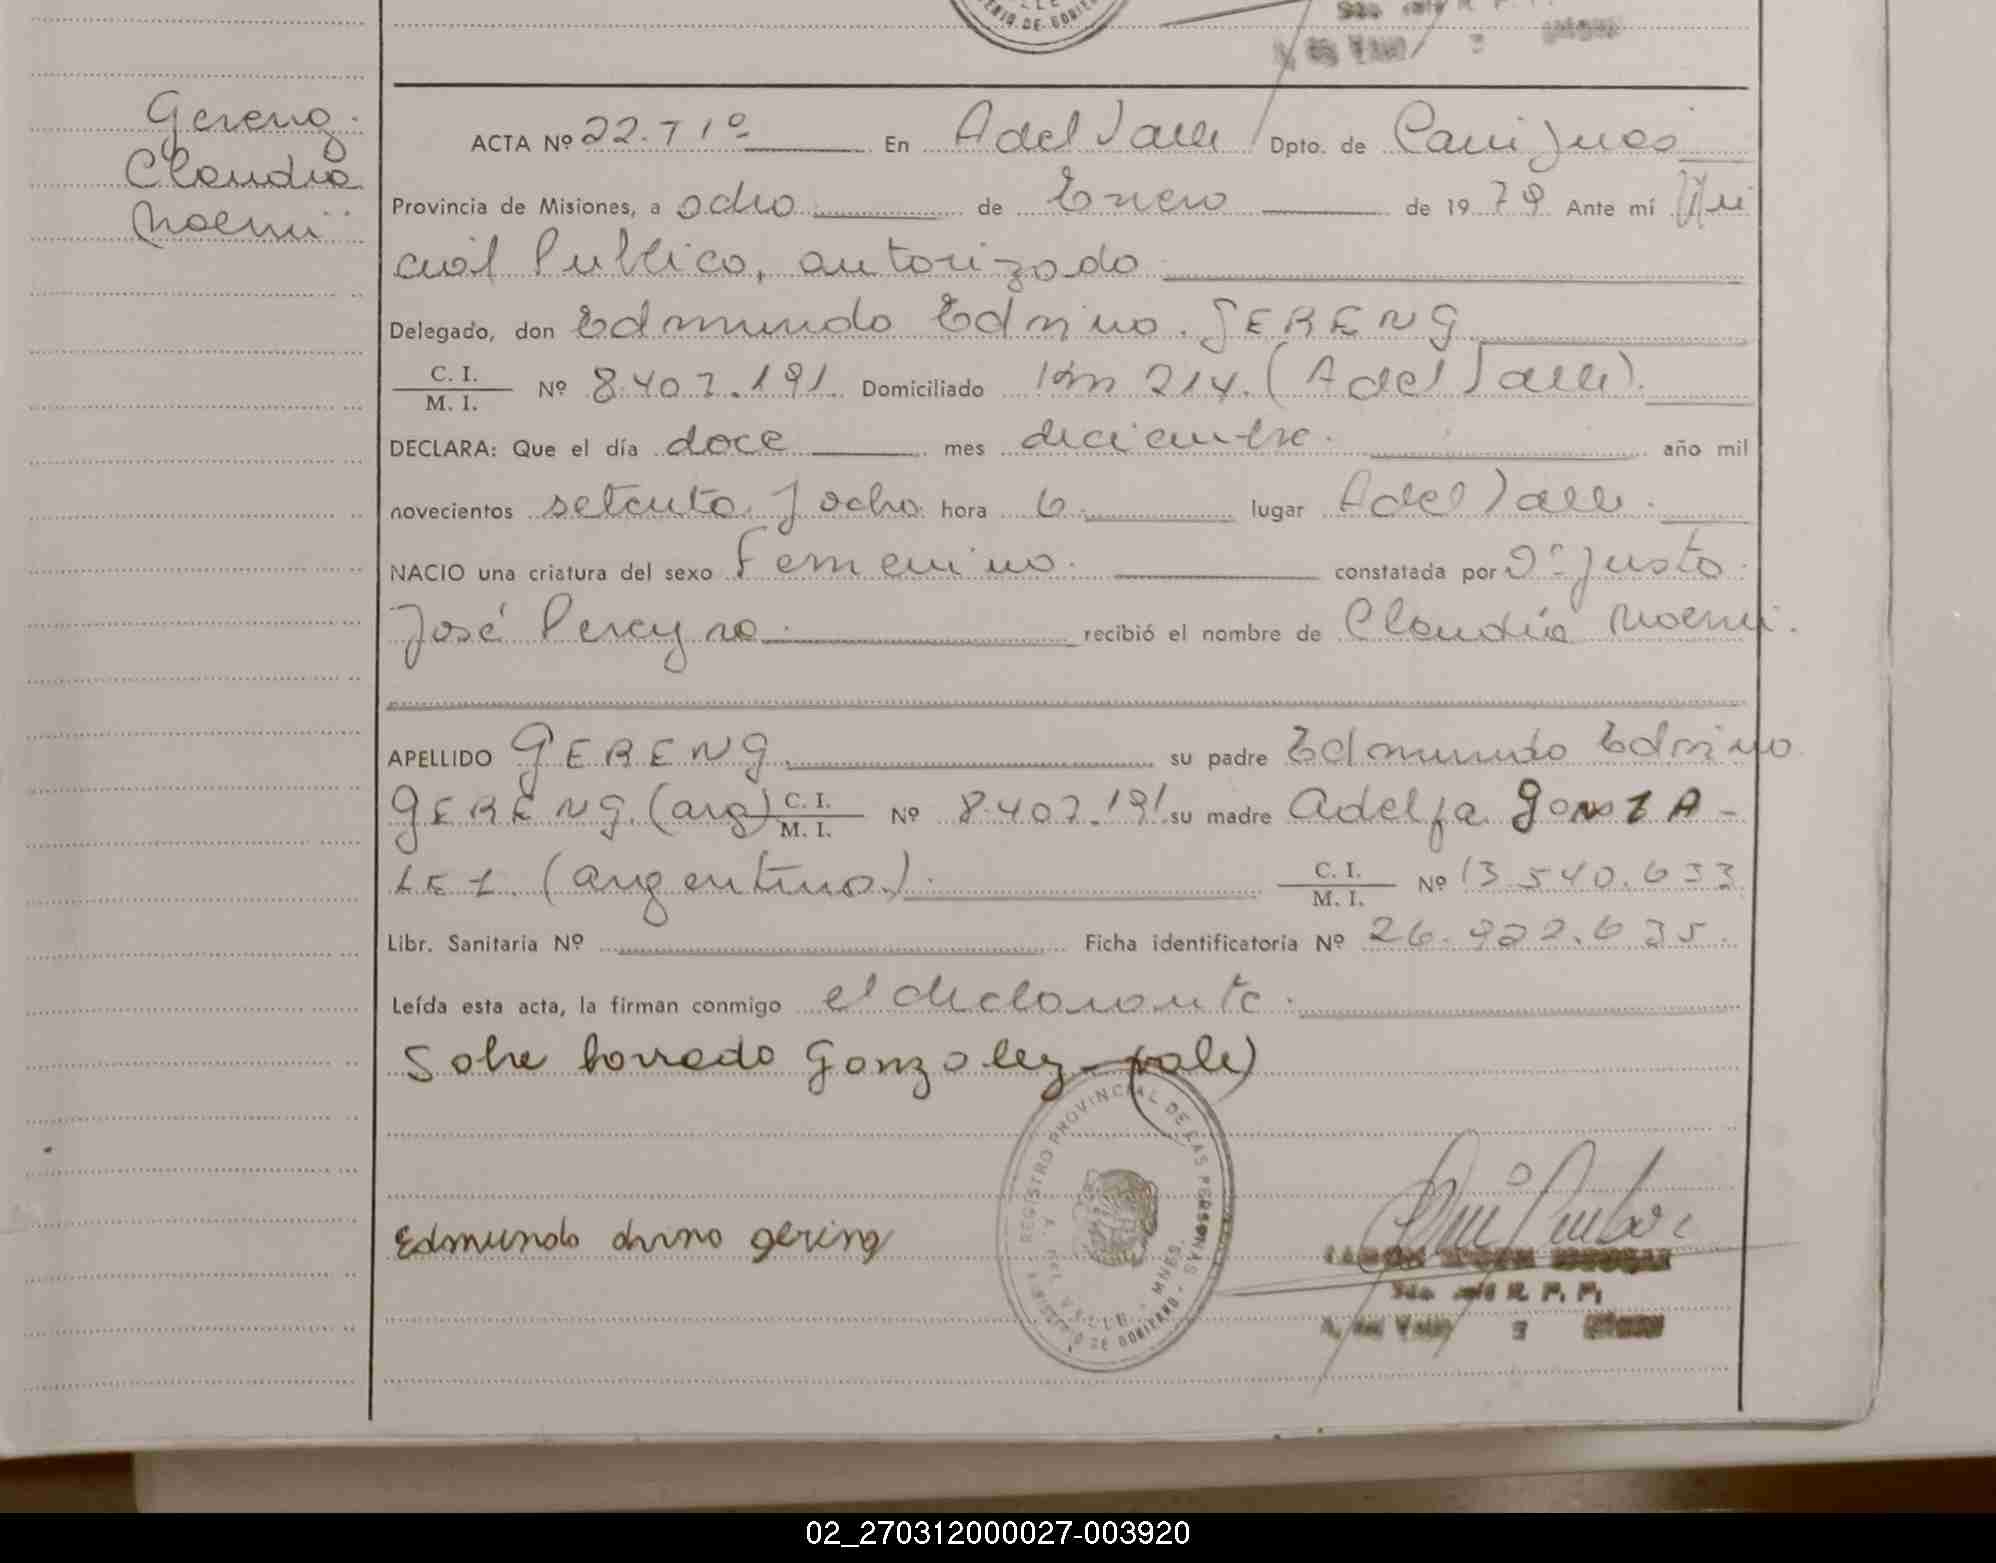 MINISTERIO DE GOBIERNO
Gereng
Claudia
Noemi
ACTA Nº 22. T 1º En A del Valle Dpto. de Cainguas
Provincia de Misiones, a ocho de Enero de 19 79 Ante mí Ofi
cial Publico, autorizado
Delegado, don Edmundo Edvino. GERENG
C. I.
M. I. Nº 8.407.191. Domiciliado Km 214. (A del Valle).
DECLARA: Que el día doce mes diciembre. año mil
novecientos setenta y ocho hora 6. lugar A del Valle.
NACIO una criatura del sexo Femenino. constatada por Dr. Justo
José Pereyra. recibió el nombre de Claudia Noemi.
APELLIDO GERENG su padre Edmundo Edvino
GERENG. (arg) C. I.
M. I. Nº 8.407.191. su madre Adelfa GONZA-
LEZ. (argentina). C. I.
M. I. Nº 13.540.633
Libr. Sanitaria Nº Ficha identificatoria Nº 26.922.635.
Leída esta acta, la firman conmigo el declarante.
Sobre borrado Gonzalez - (vale)
REGISTRO PROVINCIAL DE LAS PERSONAS
A. DEL VALLE - MNES.
MINISTERIO DE GOBIERNO
Edmundo gering
R. P. P.
A. del Valle
02_270312000027-003920